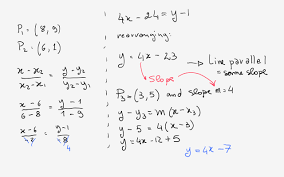 P₁ = (8, 9)
P₂ = (6, 1)
x-x₂/x₂-x₁ = y-y₂/y₂-y₁
x-6/6-8 = y-1/1-9
x-6/-2 = y-1/-8 4
4x-24=y-1
rearranging:
y = 4x-23
Slope
→ Line parallel
= same slope
P₃ = (3,5) and slope m=4
y-y₃ = m(x-x₃)
y-5 = 4(x-3)
y = 4x-12+5
y=4x-7